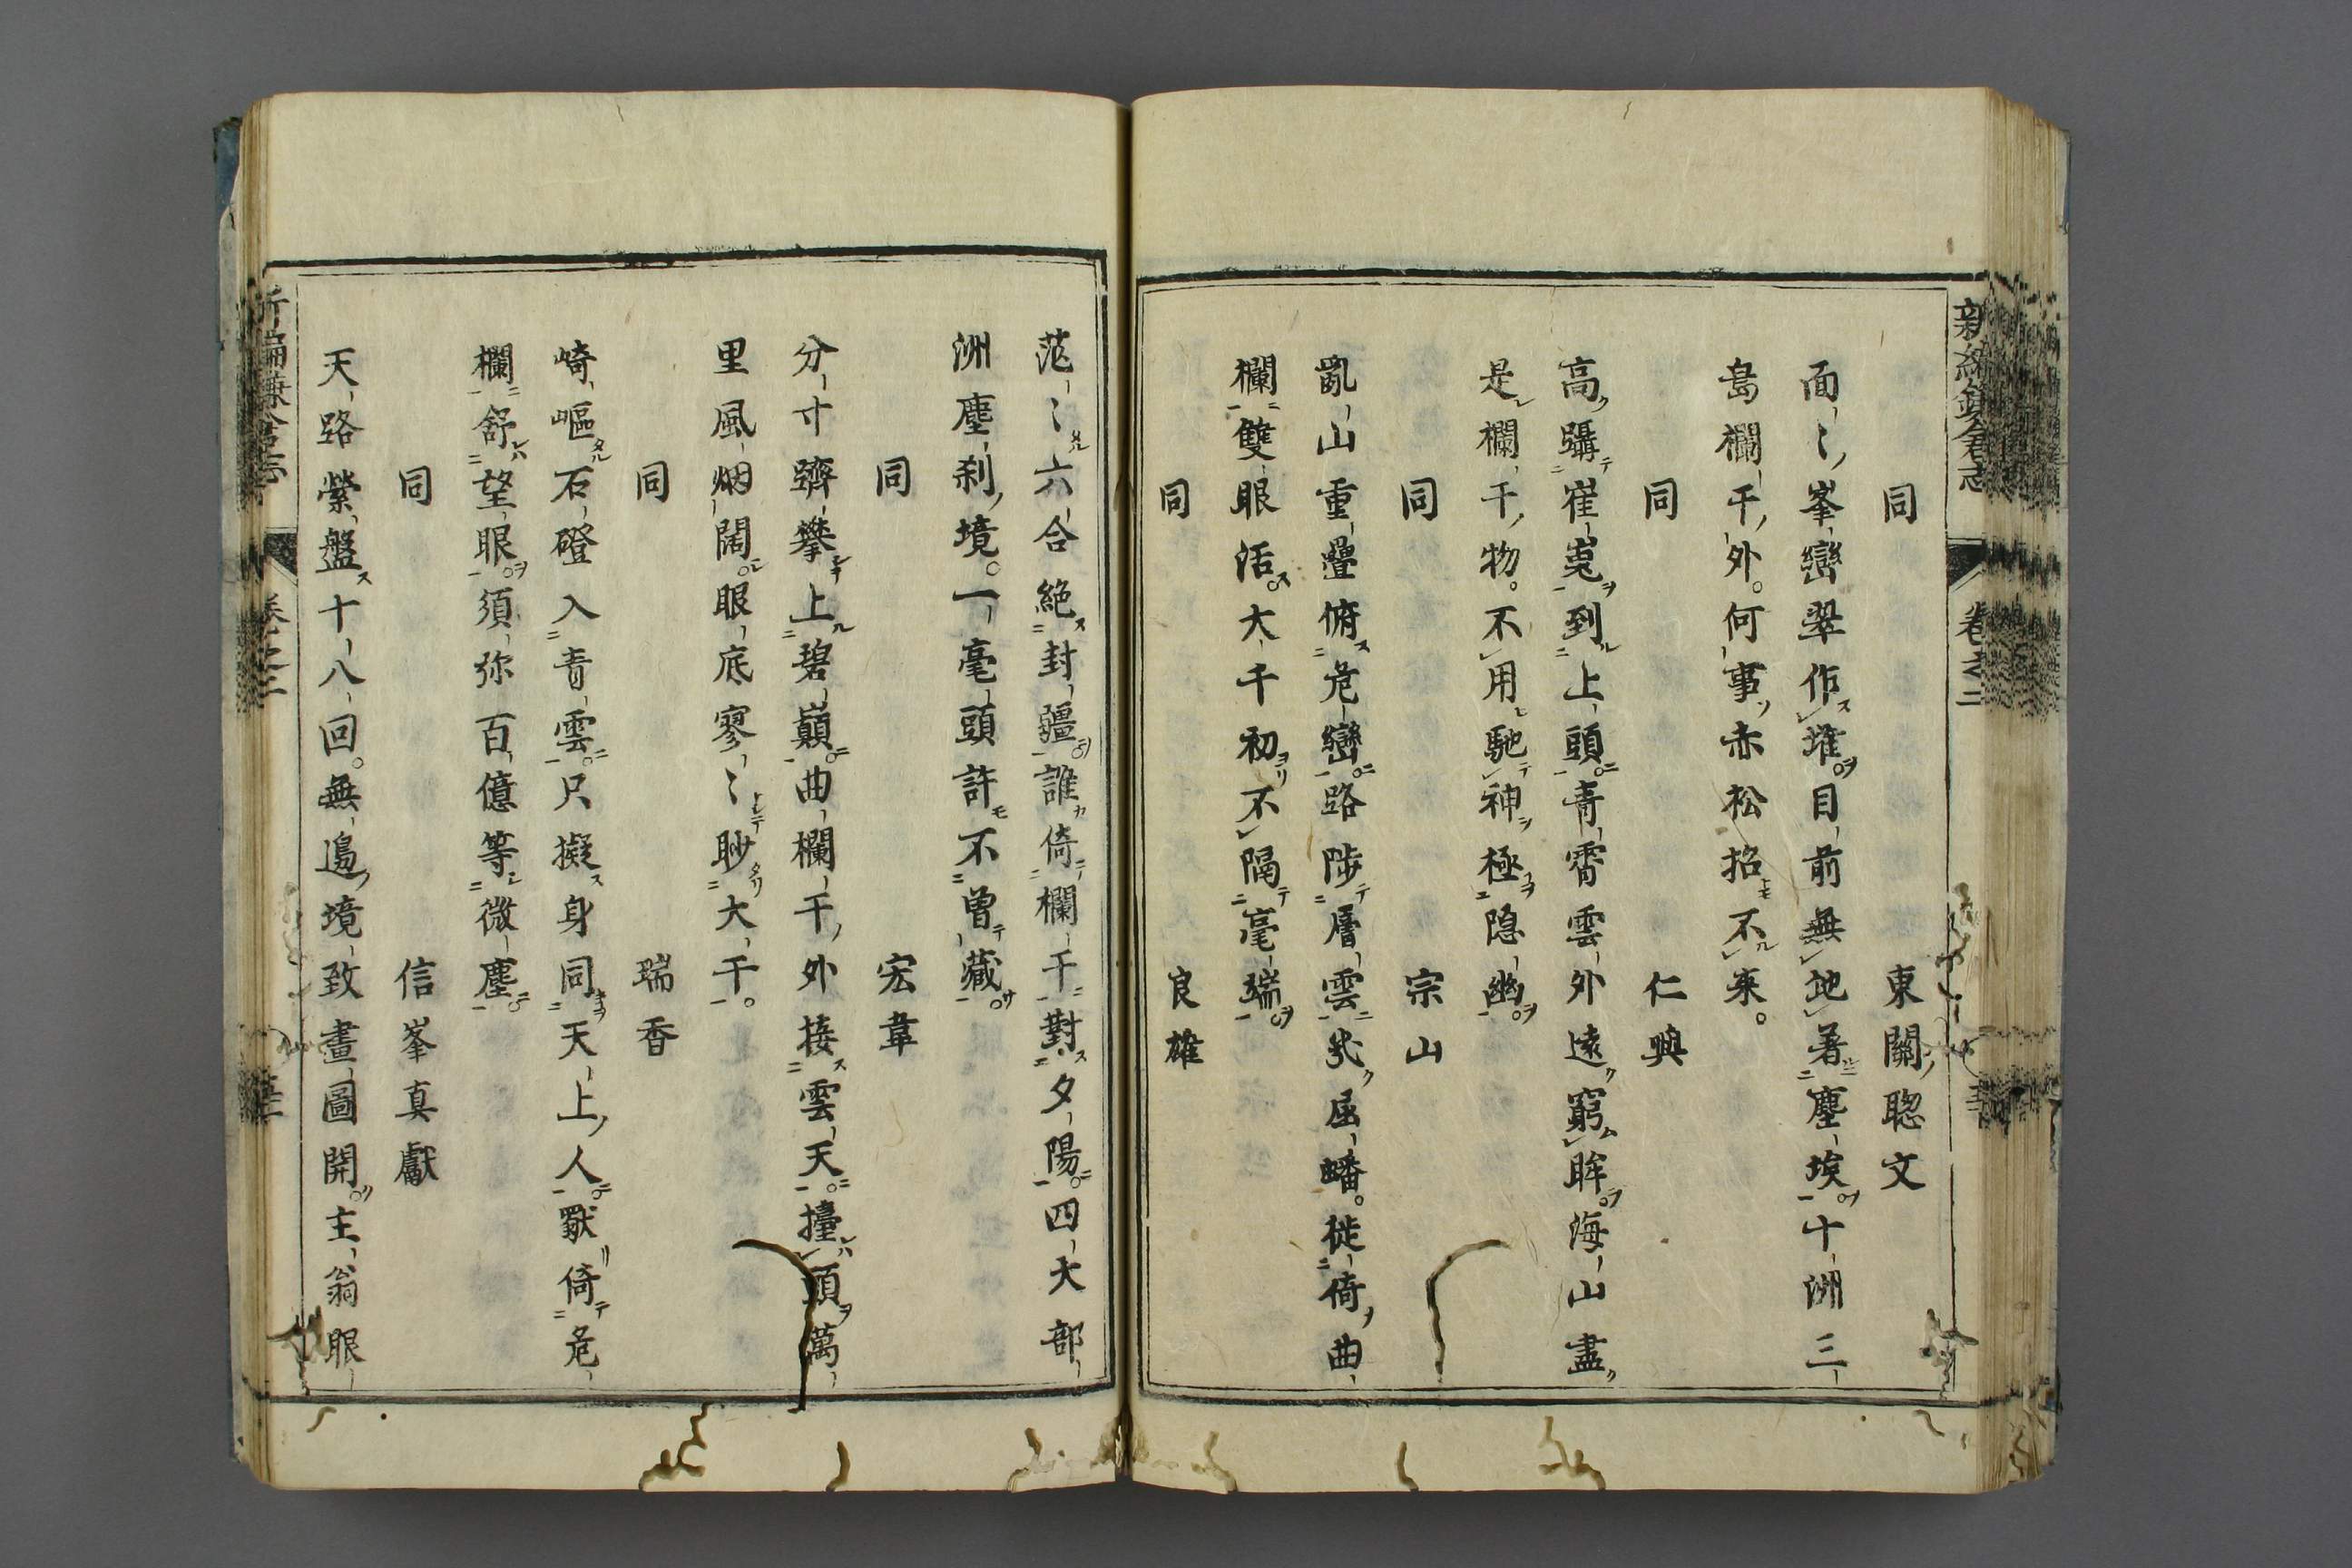 新編鎌倉志
卷之二
同 東關聡文
面〻峯巒翠作堆目前無地著塵埃十洲三
島欄干外何事赤松招不来
同 仁與
高躡崔嵬到上頭青霄雲外遠窮眸海山盡
是欄干物不用馳神極隠幽
同 宗山
亂山重疊俯危巒路陟層雲㡬屈蟠徙倚曲
欄雙眼活大千初不隔毫端
同 良雄
茫〻六合絶封疆誰倚欄干對夕陽四大部
洲塵刹境一毫頭許不曽藏
同 宏韋
分寸躋攀上碧巔曲欄干外接雲天擡頭萬
里風烟闊眼底寥〻眇大千
同 瑞香
崎嶇石磴入青雲只擬身同天上人獸倚危
欄舒望眼須弥百億等微塵
同 信峯真獻
天路縈盤十八回無邊境致畫圖開主翁眼
新編鎌倉志
卷之二